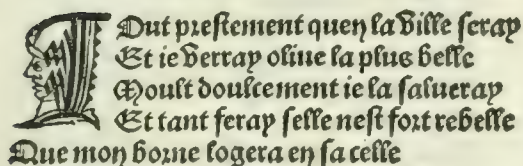 Tout prestement quen la ville seray
Et ie verray oliue la plus belle
Moult doulcement ie la salueray
Et tant feray selle nest fort rebelle
Que mon borne logera en sa celle